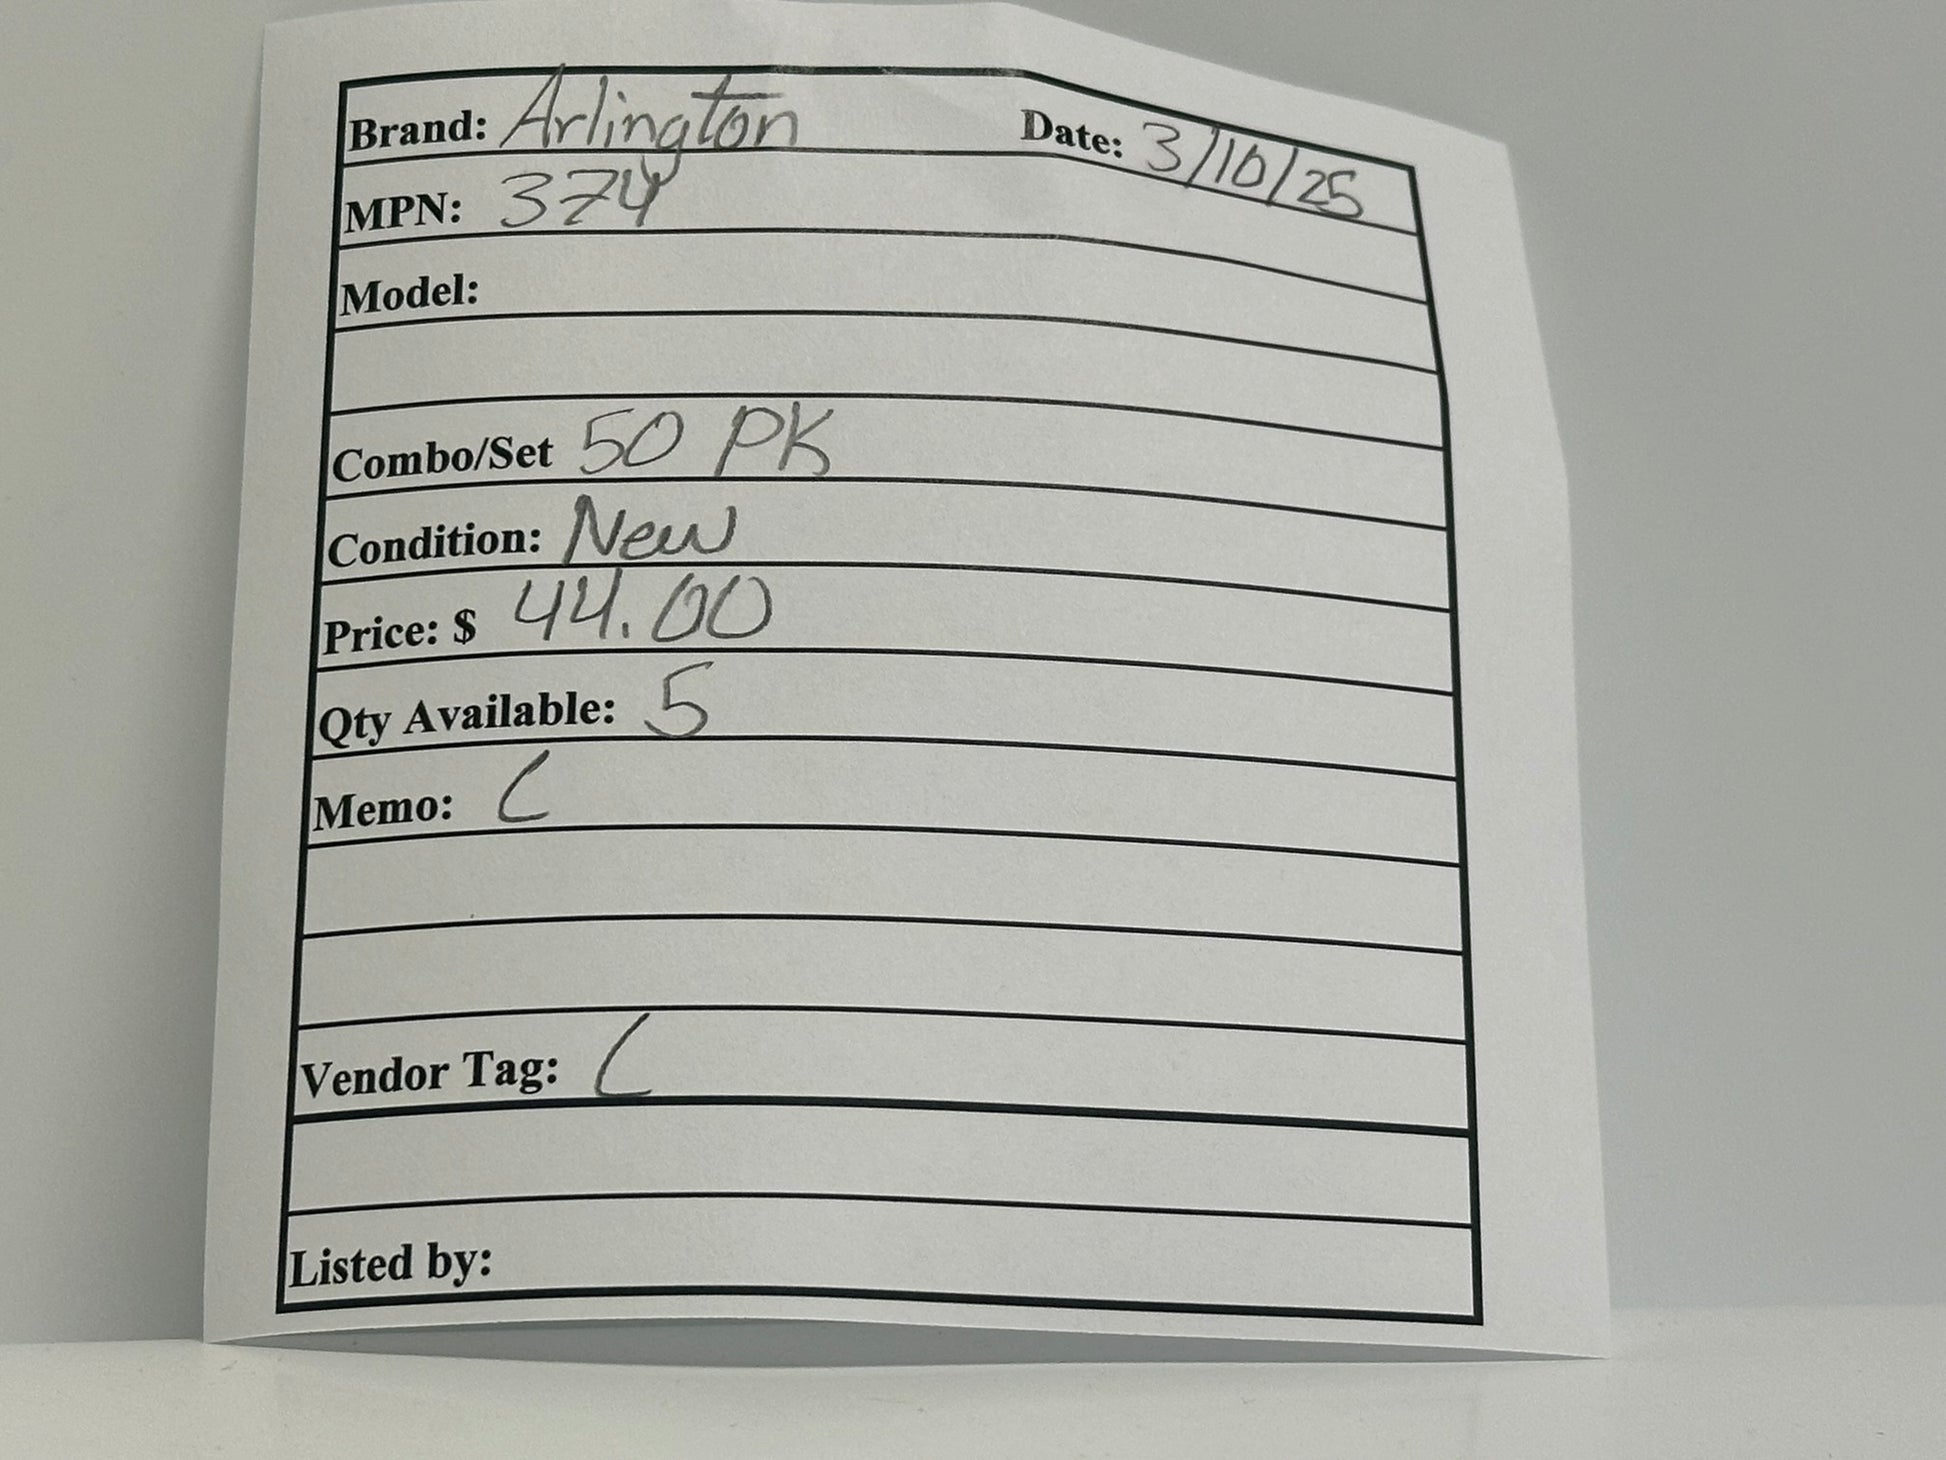 Brand: Arlington Date: 3/10/25
MPN: 374
Model:
Combo/Set 50 PK
Condition: New
Price: $ 44.00
Qty Available: 5
Memo: L
Vendor Tag: L
Listed by: